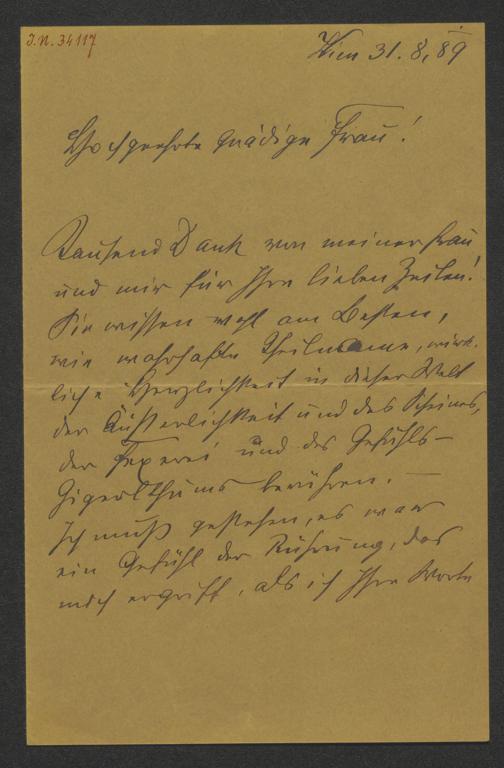 J.N. 34117
Wien 31. 8. 89
Hochgeehrte gnädige Frau!
Tausend Dank von meiner Frau
und mir für Ihre lieben Zeilen!
Sie wissen wohl am Besten,
wie wahrhafte Theilname, wirk-
liche Herzlichkeit in dieser Welt
der Äußerlichkeit und des Scheines,
der Fexerei und des Gefühls-
Gigerlthums berühren. —
Ich muß gestehen, es war
ein Gefühl der Rührung, das
mich ergriff, als ich Ihre Worte